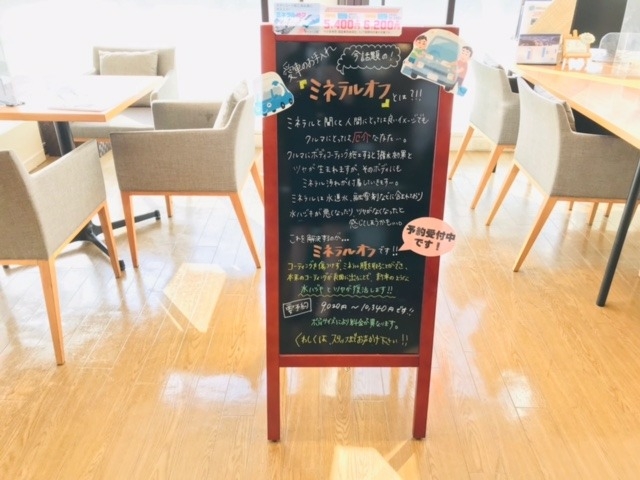 5,400円 6,200円
愛車のお手入れ
今話題の!
『ミネラルオフ』とは?!!
ミネラルと聞くと人間にとっては良いイメージでも
クルマにとっては厄介なもの…。
クルマにボディコーティングがしてあると撥水効果と
ツヤが生まれますが、そのボディにも
ミネラル汚れが付着していきます…。
ミネラルは水道水、融雪剤などに含まれており
水ハジキが悪くなったり ツヤがなくなったと
感じてしまうかも…。
これを解決するのが…
ミネラルオフです!!
予約受付中
です!
コーティングを傷つけず、ミネラル
本来のコーティングが表面に出ることで、
水ハジキとツヤが復活します!!
要予約
9,020円 〜 10,340円です!!
ボディサイズにより料金が異なります。
くわしくは、スタッフまでおたずね下さい!!